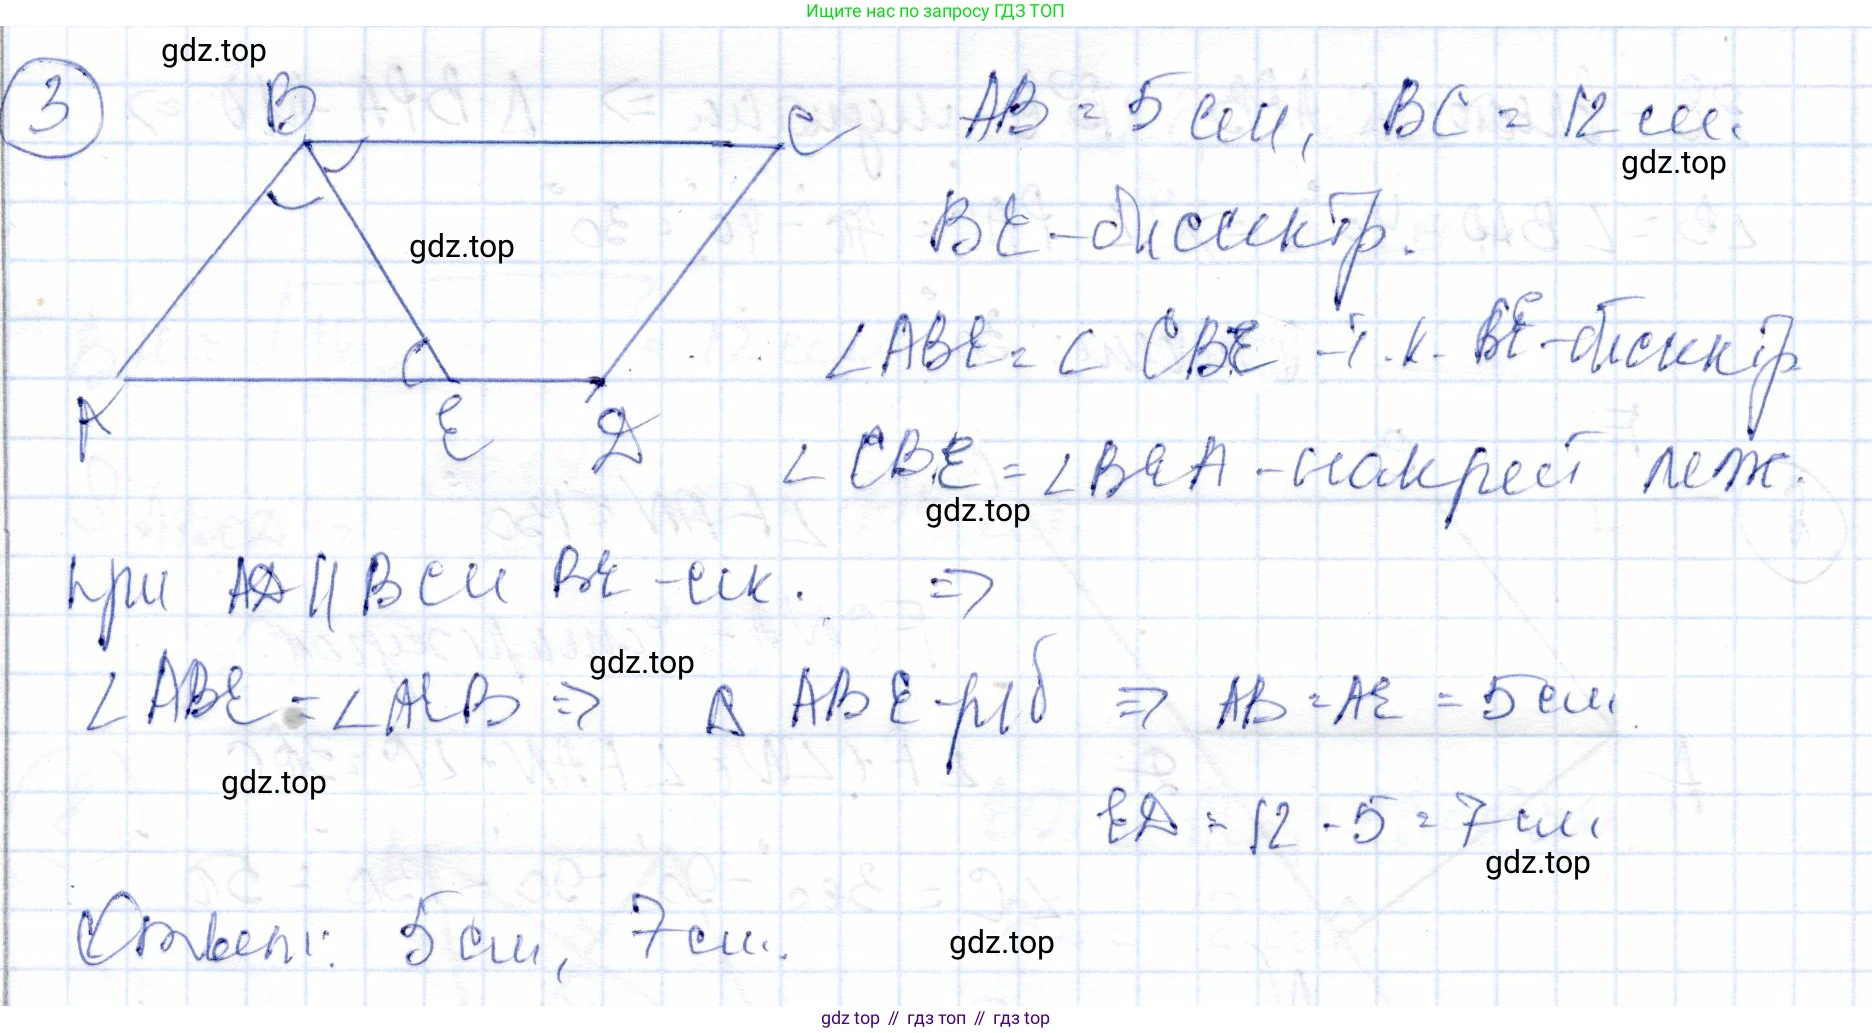 Ищите нас по запросу ГДЗ ТОП
gdz.top
3
B
C
AB = 5 см, BC = 12 см.
gdz.top
BE - биссектр.
gdz.top
∠ABE = ∠CBE - т.к. BE - биссектр
A
E
D
∠CBE = ∠BEA - накрест леж.
gdz.top
при AD || BC и BE - сек. =>
gdz.top
∠ABE = ∠AEB => △ ABE - р/б => AB = AE = 5 см.
gdz.top
ED = 12 - 5 = 7 см.
gdz.top
Ответ: 5 см, 7 см.
gdz.top
gdz top // гдз топ // гдз top